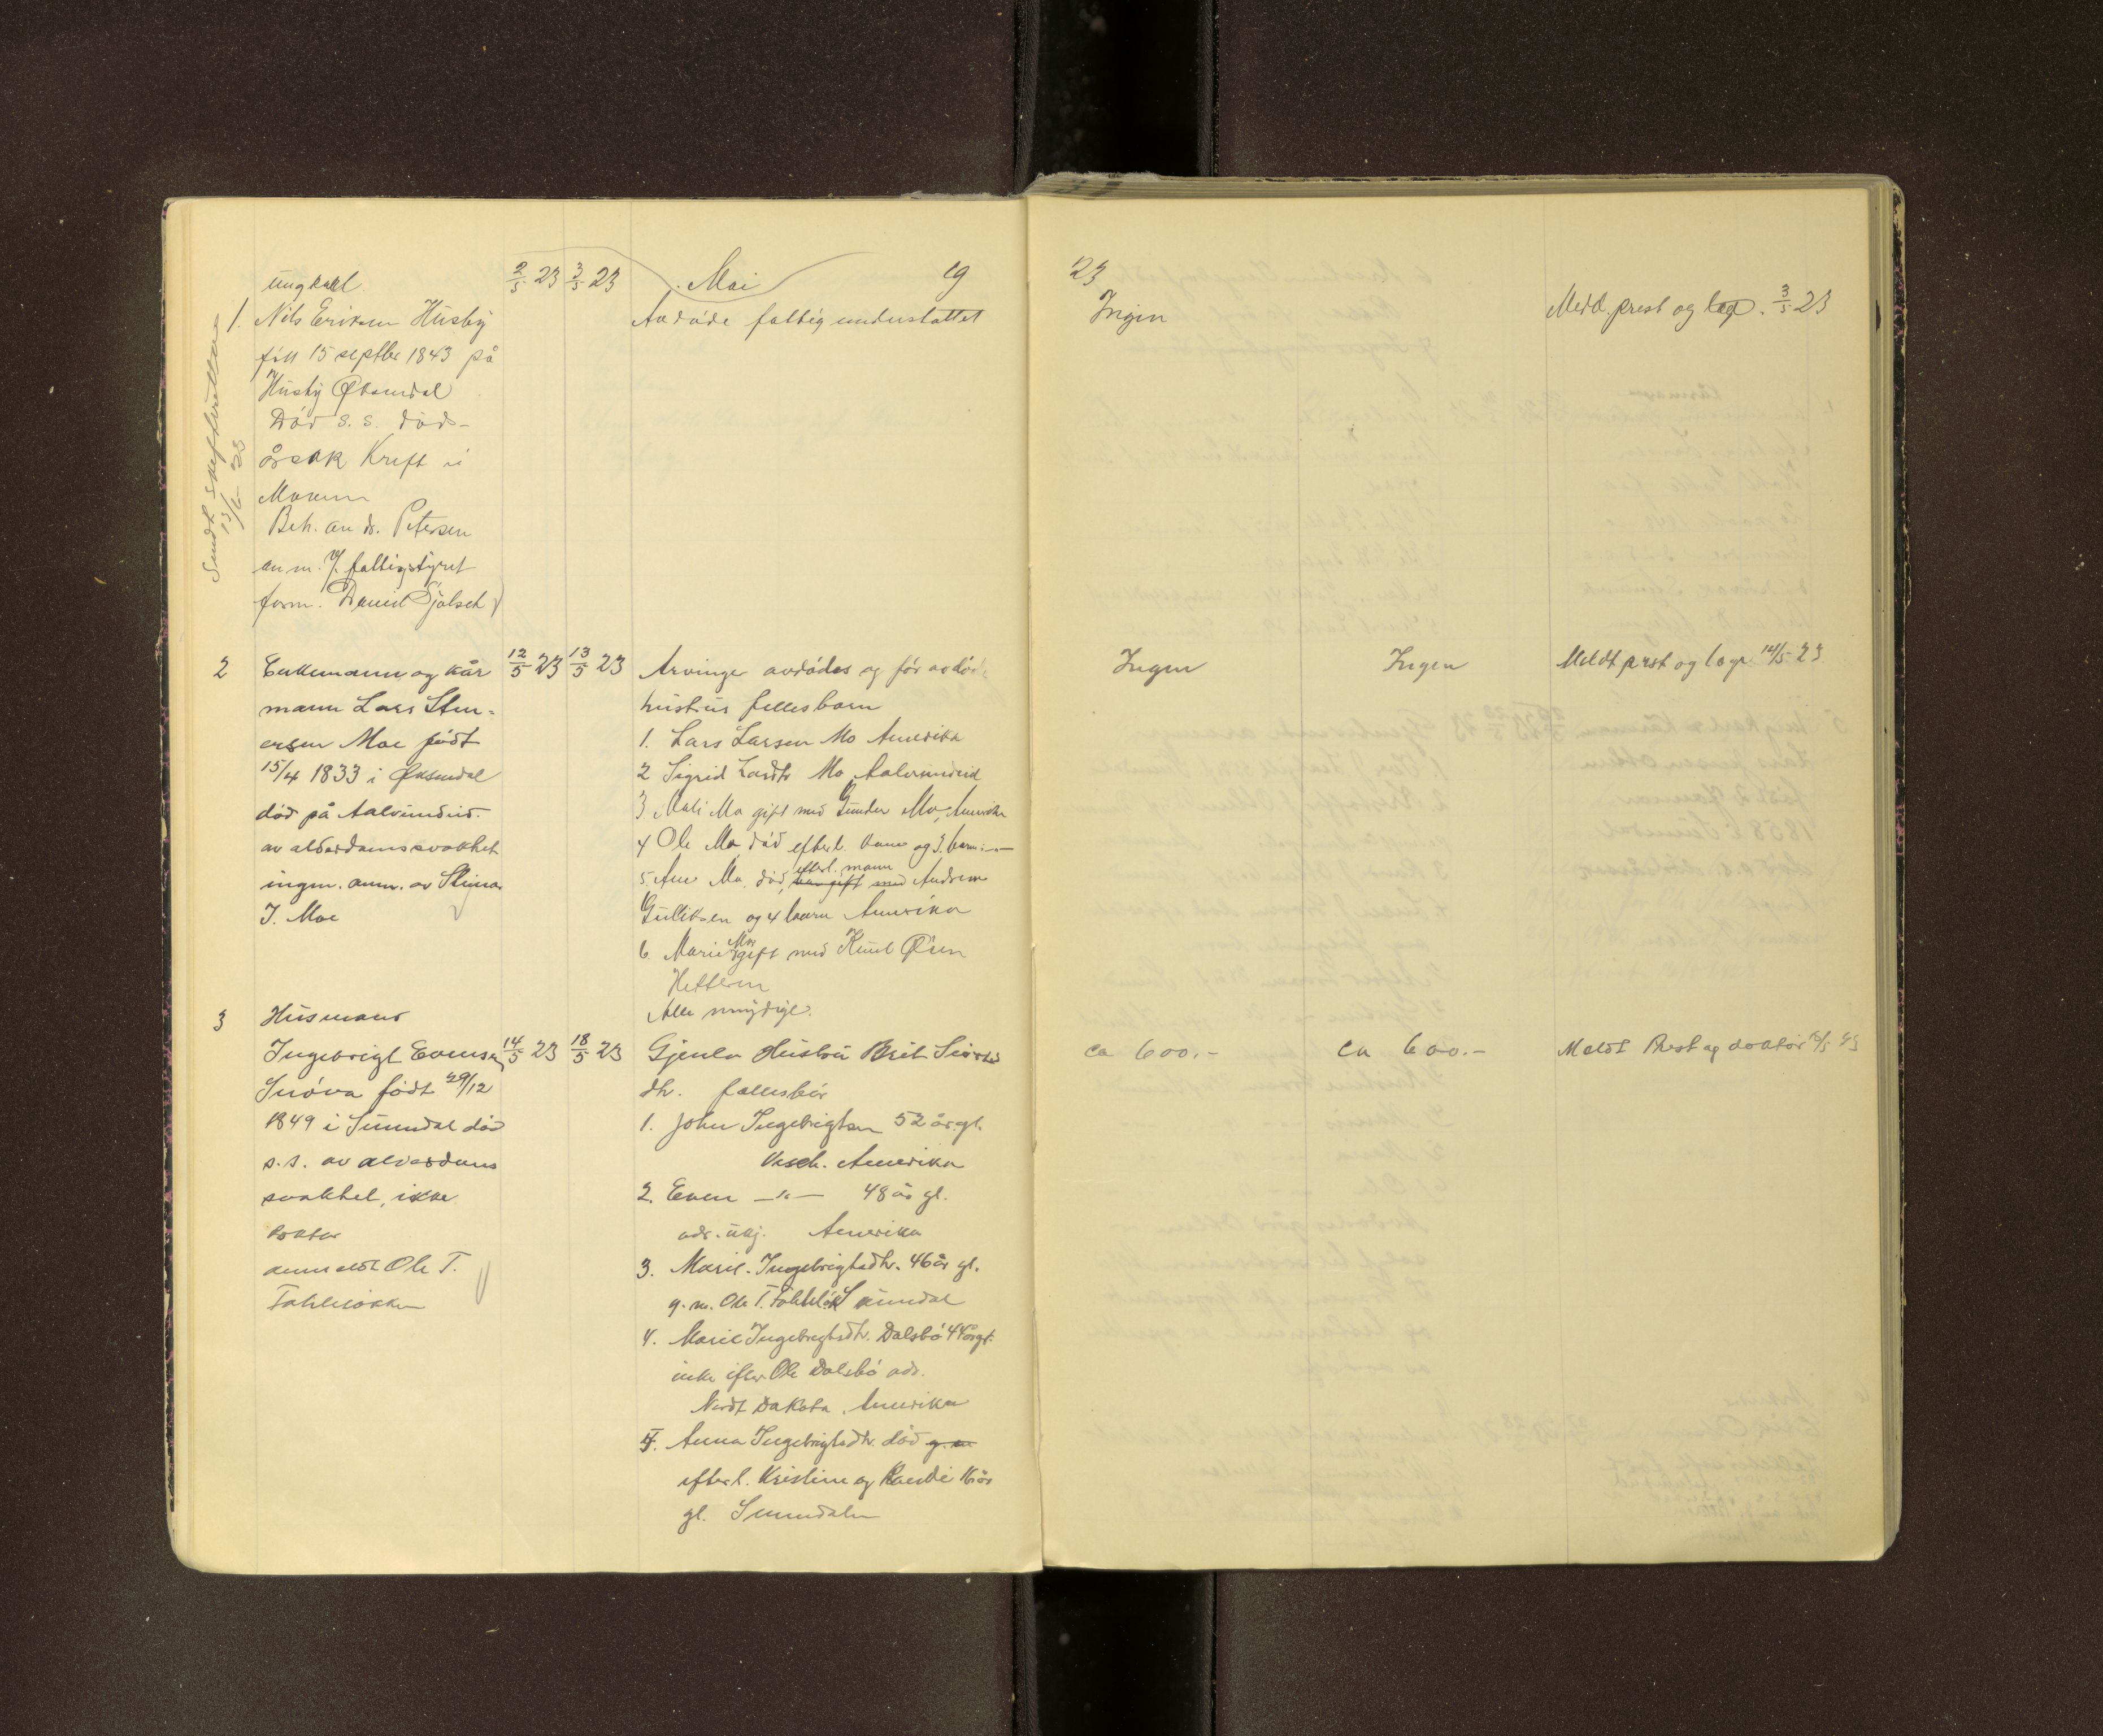 Mai 1923
Sendt Skifteretten
13/6 23
1. Ungkarl 2/5 23 3/5 23 Avdøde fattigunderstøttet Ingen Meldt prest og lege 3/5 23
Nils Eriksen Húsby
født 15 septbr 1843 på
Húsby Øksendal
Død s. s. døds-
årsak Kreft i
Maven
Beh. av dr. Petersen
an m. v/ fattigstyret
form. Daniel Sjølseth
2 Enkemann og kår 12/5 23 13/5 23 Arvinger avdødes og før avdøde Ingen Ingen Meldt prest og lege 14/5 23
mann Lars Sten-
ersen Moe født
15/4 1833 i Øksendal
død på Aalvundeid.
av alderdomssvakhet
ingen. anm. av Steinar
J. Moe
hustrus fellesbarn
1. Lars Larsen Mo Amerika
2 Sigrid Larsdtr Mo Aalvundeid
3 Mali Mo gift med Gunder Mo, Amerika
4 Ole Mo død efterl. kone og 3 barn -"-
5. Ane Mo. død, efterl. mann Andreas
Gulliksen og 4 barn Amerika
6. Marie Moe gift med Knut Øien
Hetteren
Alle myndige.
3 Husmand
Ingebrigt Evensen 14/5 23 18/5 23 Gjenlev Hustru Brit Siverts ca 600.- ca 600.- Meldt Prest og doktor 18/5 23
Snøva født 29/12
1849 i Sunndal død
s. s. av alderdoms
svakhet, ikke
doktor
anmeldt Ole T.
Fahleløkken
dtr. fellesbør
1. John Ingebrigtsen 52 år gl.
Amerika
2. Even -"- 48 år gl.
adr. ukj. Amerika
3. Marit. Ingebrigtsdtr. 46 år gl.
g. m. Ole T. Fahleløk Sunndal
4. Marie Ingebrigtsdtr. Dalsbø 44 år gl.
enke efter Ole Dalsbø adr.
Nordt Dakota, Amerika
5. Anna Ingebrigtsdtr. død g. m
efterl. Kristine og Randi 16 år
gl. Sunndalen